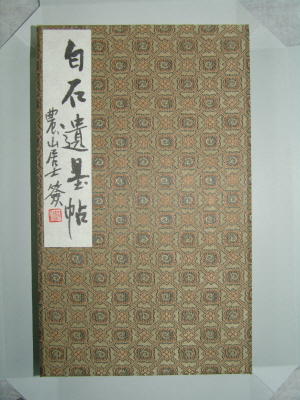 白石遺墨帖
農山居士簽